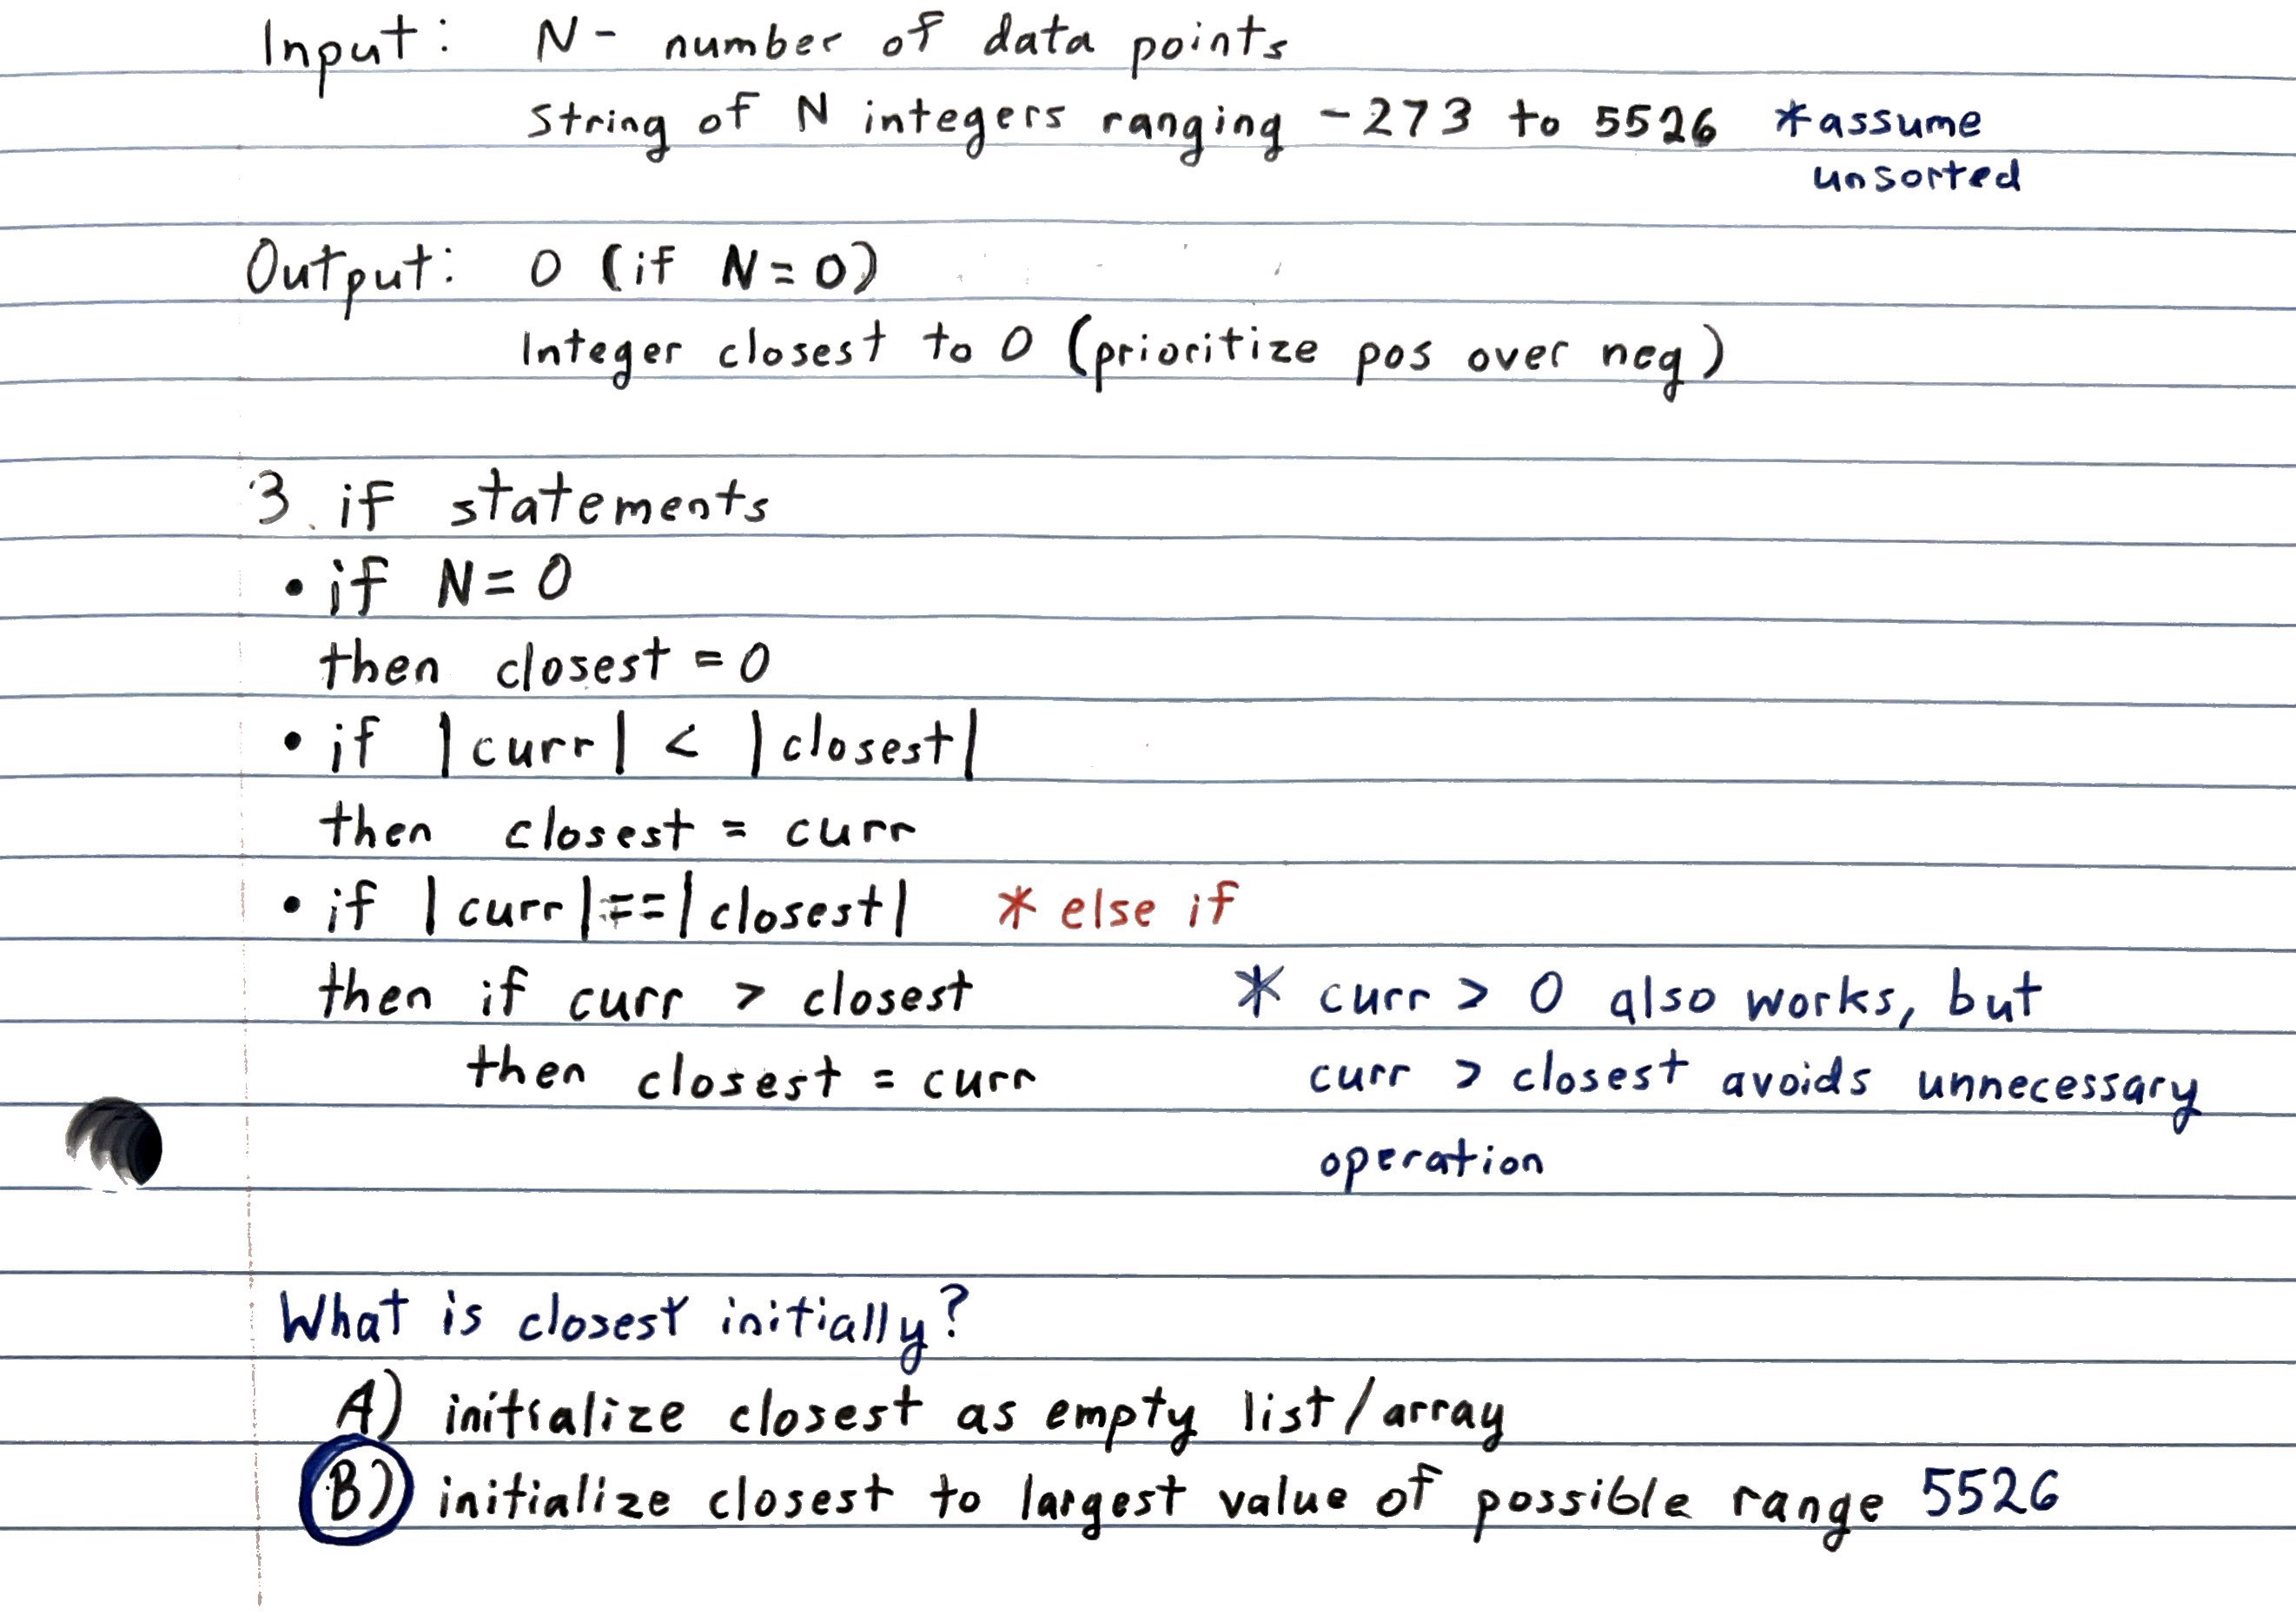 Input: N - number of data points
String of N integers ranging -273 to 5526 *assume
unsorted
Output: 0 (if N=0)
Integer closest to 0 (prioritize pos over neg)
3 if statements
• if N=0
then closest = 0
• if |curr| < |closest|
then closest = curr
• if |curr|==|closest| * else if
then if curr > closest * curr > 0 also works, but
then closest = curr curr > closest avoids unnecessary
operation
What is closest initially?
A) initialize closest as empty list/array
B) initialize closest to largest value of possible range 5526